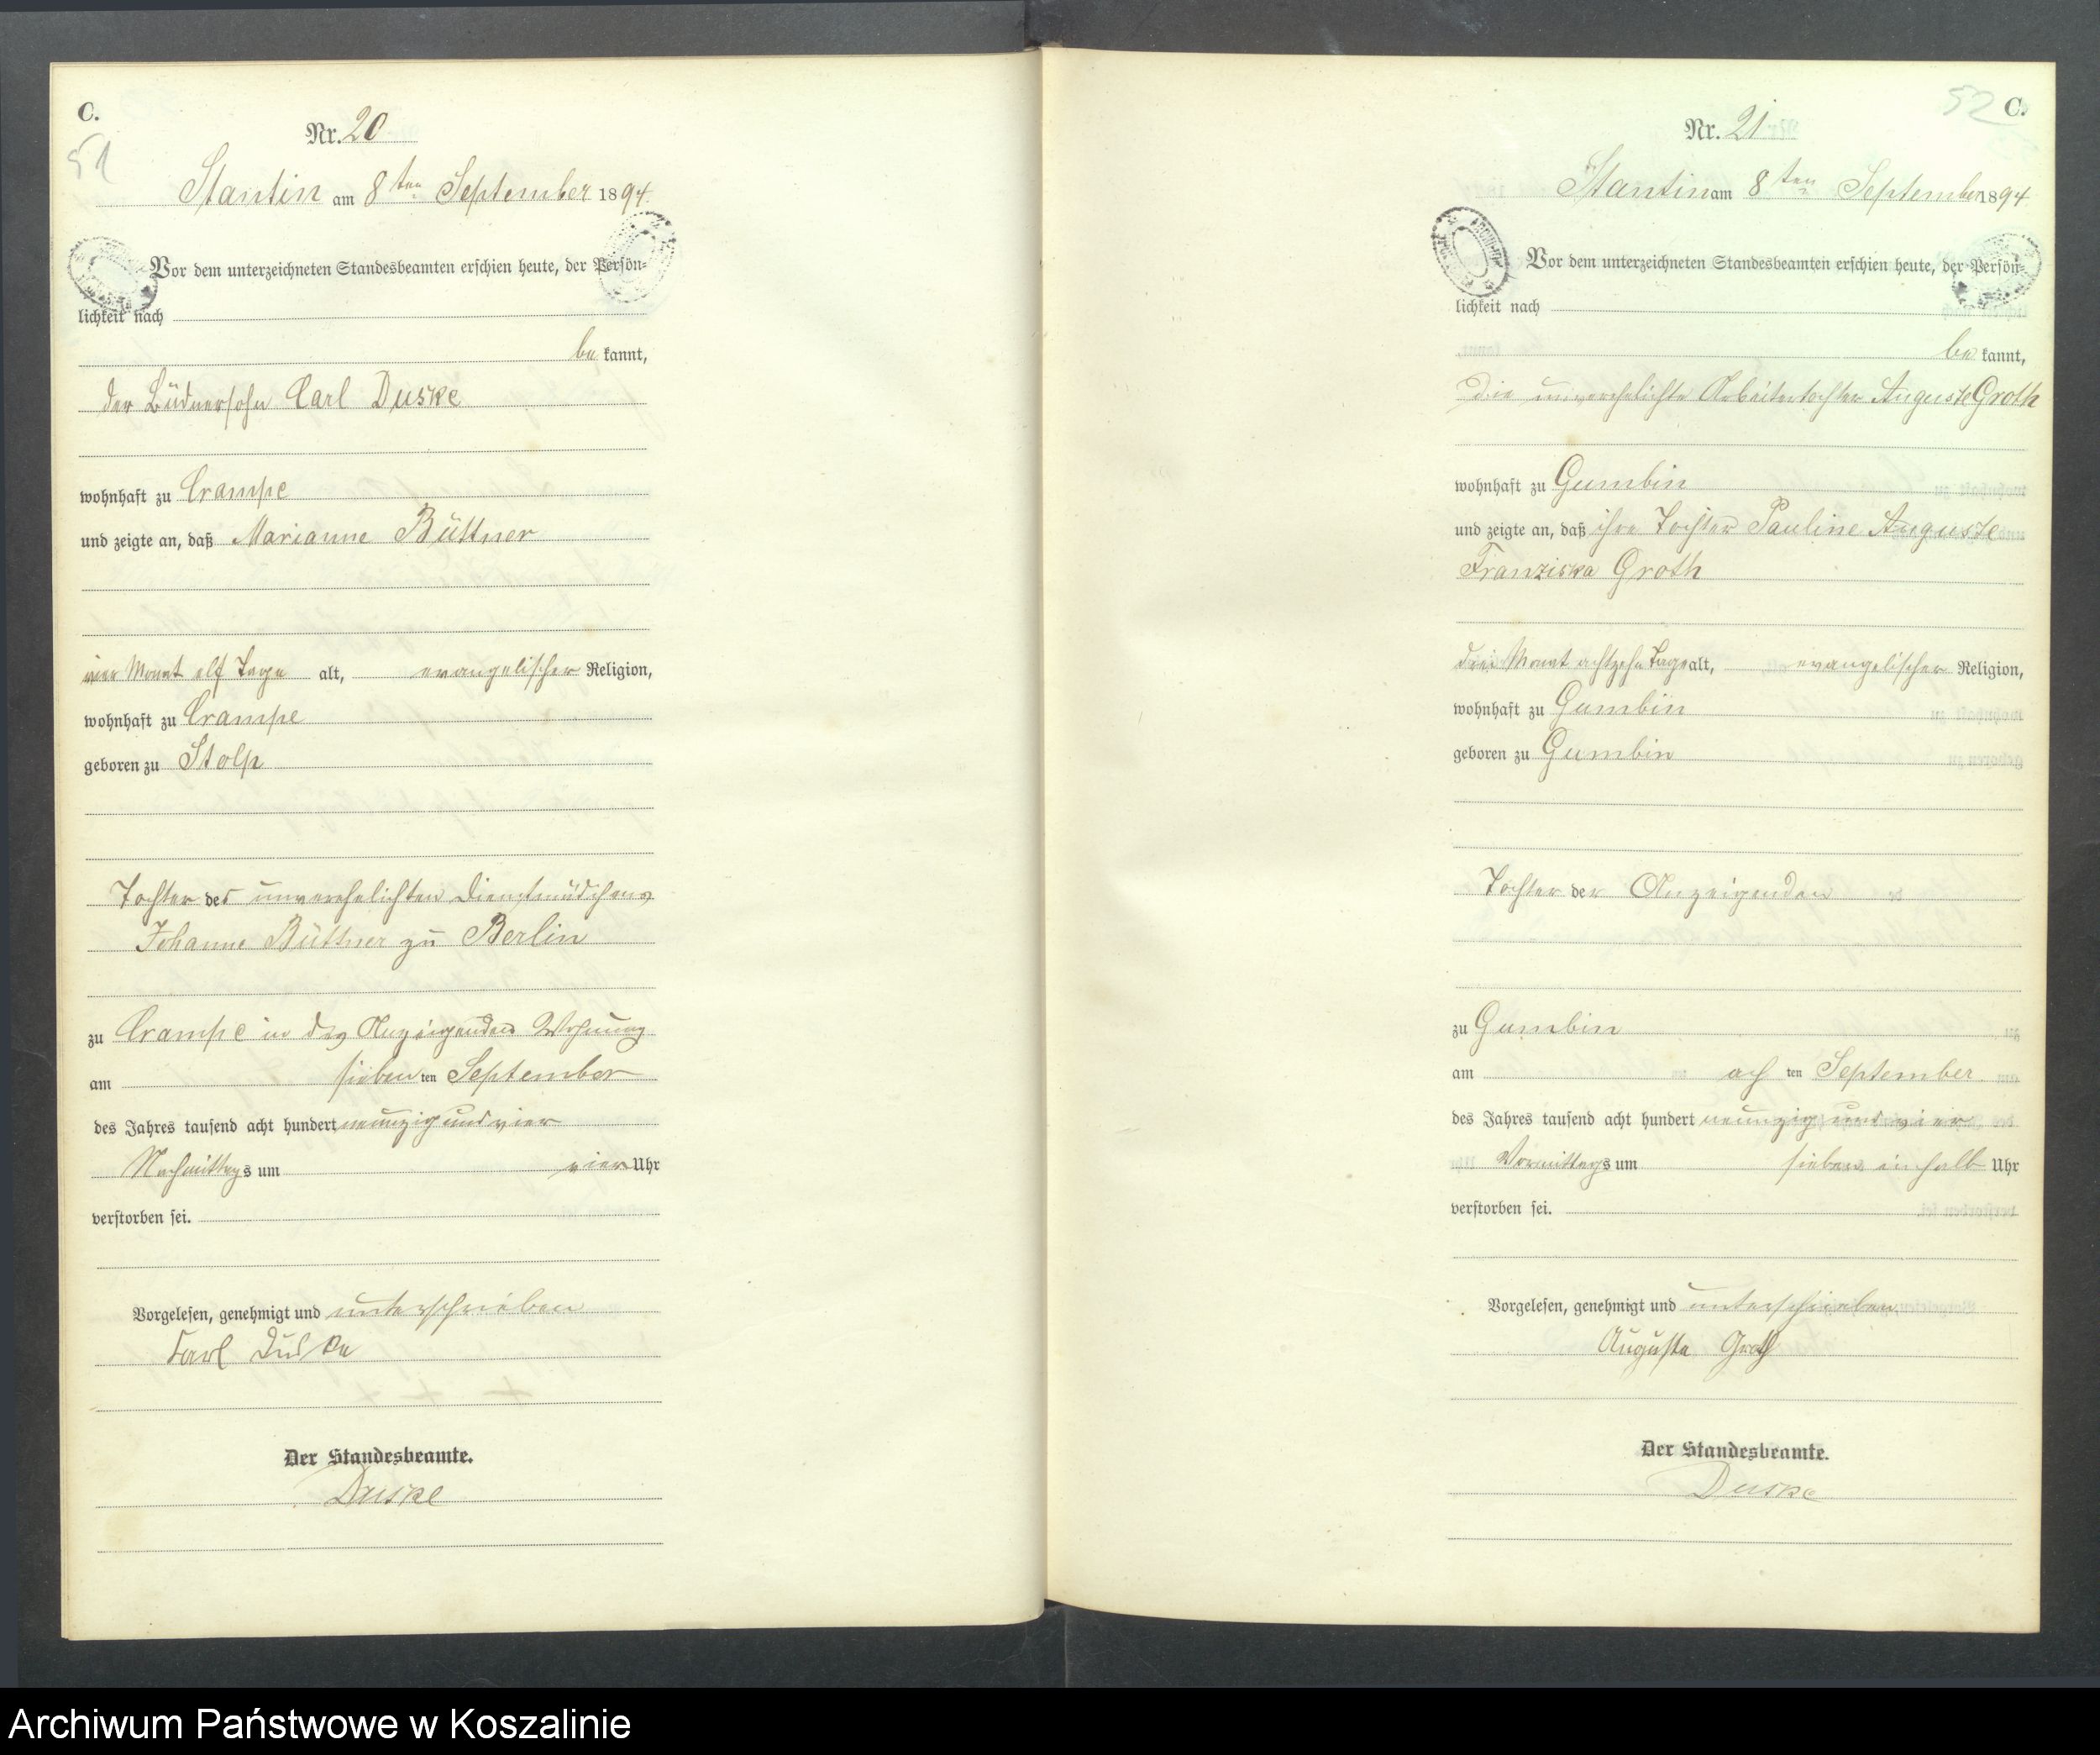 C.
51
Nr. 20
Stantin am 8ten September 1894
Vor dem unterzeichneten Standesbeamten erschien heute, der Persön-
lichkeit nach
be kannt,
der Büdnersohn Carl Duske
wohnhaft zu Crampe
und zeigte an, daß Marianne Büttner
vier Monat elf Tage alt, evangelischer Religion,
wohnhaft zu Crampe
geboren zu Stolp
Tochter des unverehelichten Dienstmädchens
Johanne Büttner zu Berlin
zu Crampe in des Anzeigenden Wohnung
am sieben ten September
des Jahres tausend acht hundert neunzig und vier
Nachmittags um vier Uhr
verstorben sei.
Vorgelesen, genehmigt und unterschrieben
Carl Duske
Der Standesbeamte.
Duske
52 C.
Nr. 21
Stantin am 8ten September 1894
Vor dem unterzeichneten Standesbeamten erschien heute, der Persön-
lichkeit nach
be kannt,
die unverehelichte Arbeitertochter Auguste Groth
wohnhaft zu Gumbin
und zeigte an, daß ihre Tochter Pauline Auguste
Franziska Groth
drei Monat achtzehn Tage alt, evangelischer Religion,
wohnhaft zu Gumbin
geboren zu Gumbin
Tochter der Anzeigenden
zu Gumbin
am ach ten September
des Jahres tausend acht hundert neunzig und vier
Vormittags um sieben einhalb Uhr
verstorben sei.
Vorgelesen, genehmigt und unterschrieben
Auguste Groth
Der Standesbeamte.
Duske
Archiwum Państwowe w Koszalinie